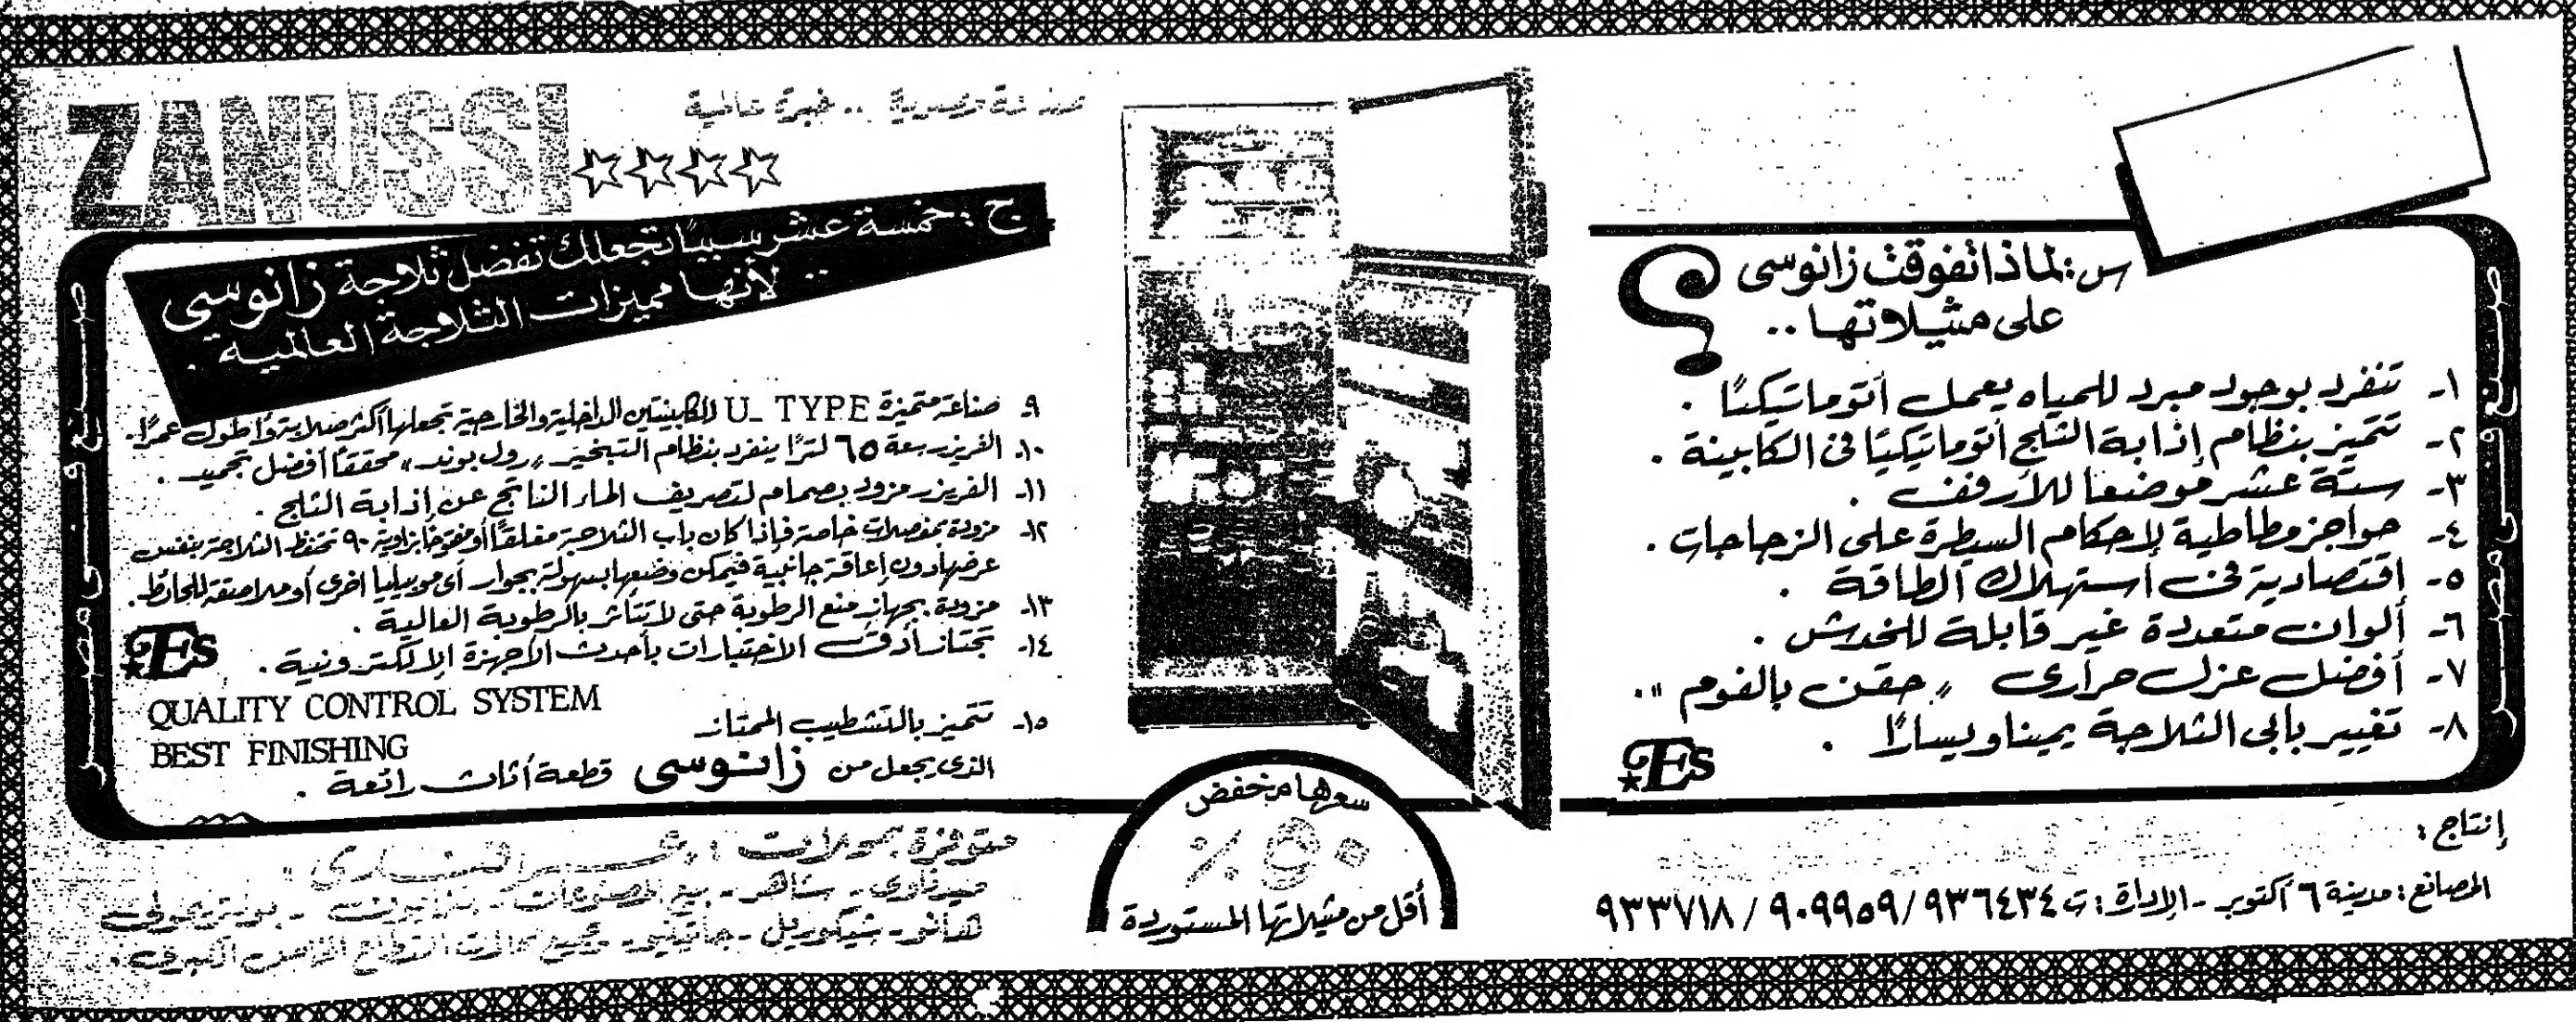 صنع فى مصر
س: لماذا تفوقت زانوسى
على مثيلاتها ..
؟
١- تنفرد بوجود مبرد للمياه يعمل أتوماتيكيًا .
٢- تتميز بنظام إذابة الثلج أتوماتيكيًا فى الكابينة .
٣- ستة عشر موضعا للأرفف .
٤- حواجز مطاطية لإحكام السيطرة على الزجاجات .
٥- اقتصادية فى استهلاك الطاقة .
٦- ألوان متعددة غير قابلة للخدش .
٧- أفضل عزل حرارى "حقن بالفوم".
٨- تغيير بابى الثلاجة يمينا ويسارًا .
إنتاج :
المصانع : مدينة ٦ أكتوبر - الإدارة : ت ٩٣٦٤٣٤ / ٩٠٩٩٥٩ / ٩٣٣٧١٨
سعرها منخفض
٥٠ ٪
أقل من مثيلاتها المستوردة
ZANUSSI
صناعة مصرية .. خبرة عالمية
ج : خمسة عشر سببًا تجعلك تفضل ثلاجة زانوسى
.. لأنها مميزات الثلاجة العالمية .
٩- صناعة متميزة U_ TYPE للكابينتين الداخلية والخارجية تجعلها أكثر صلابة وأطول عمرًا.
١٠- الفريزر سعة ٦٥ لترًا ينفرد بنظام التبخير "رول بوند" محققاً أفضل تجميد .
١١- الفريزر مزود بصمام لتصريف الماء الناتج عن إذابة الثلج .
١٢- مزودة بمفصلات خاصة فإذا كان باب الثلاجة مغلقًا أو مفتوحًا بزاوية ٩٠ تحتفظ الثلاجة بنفس
عرضها دون إعاقة جانبية فيمكن وضعها بسهولة بجوار أى موبيليا اخرى أو ملاصقة للحائط .
١٣- مزودة بجهاز منع الرطوبة حتى لا تتأثر بالرطوبة العالية .
١٤- تجتاز أدق الاختبارات بأحدث الأجهزة الإلكترونية .
QUALITY CONTROL SYSTEM
BEST FINISHING
١٥- تتميز بالتشطيب الممتاز
الذى يجعل من زانوسى قطعة أثاث رائعة .
صنع فى مصر
متوفرة بمحلات :
صيدناوى - بيع المصنوعات -
هانو - شيكوريل - جاتينيو -